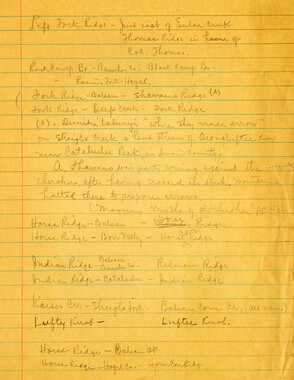 Left Fork Ridge - Just east of Enloe Creek.
Thomas Ridge in honor of
Col. Thomas.
Rock Camp Br. - Bunches Cr. Black Camp Br.
" Roaring Fork - Hazel.
Fork Ridge - Balsam - Shawano Ridge (A)
Fork Ridge - Deep Creek - Fork Ridge
(A). "Where they made arrow"
on Straight Creek a head stream of Oconaluftee
near Cataluchee Peak, in Swain County.
A Shawano war party coming against the
Cherokee, after having crossed the Smoky mountains
halted there to prepare arrows.
(Mooney, Myths of the Cherokee pp.
Horse Ridge - Balsam - Ridge
Horse Ridge - Bone Valley - Horse Ridge
Indian Ridge - Balsam Redman Ridge
Indian Ridge - Cataluchee - Indian Ridge
Cr. - Straight Fork. Balsam Corn Cr. (see new)
Lufty Knob - Luftee Knob.
Horse Ridge - Balsam
Horse Ridge - Ridge